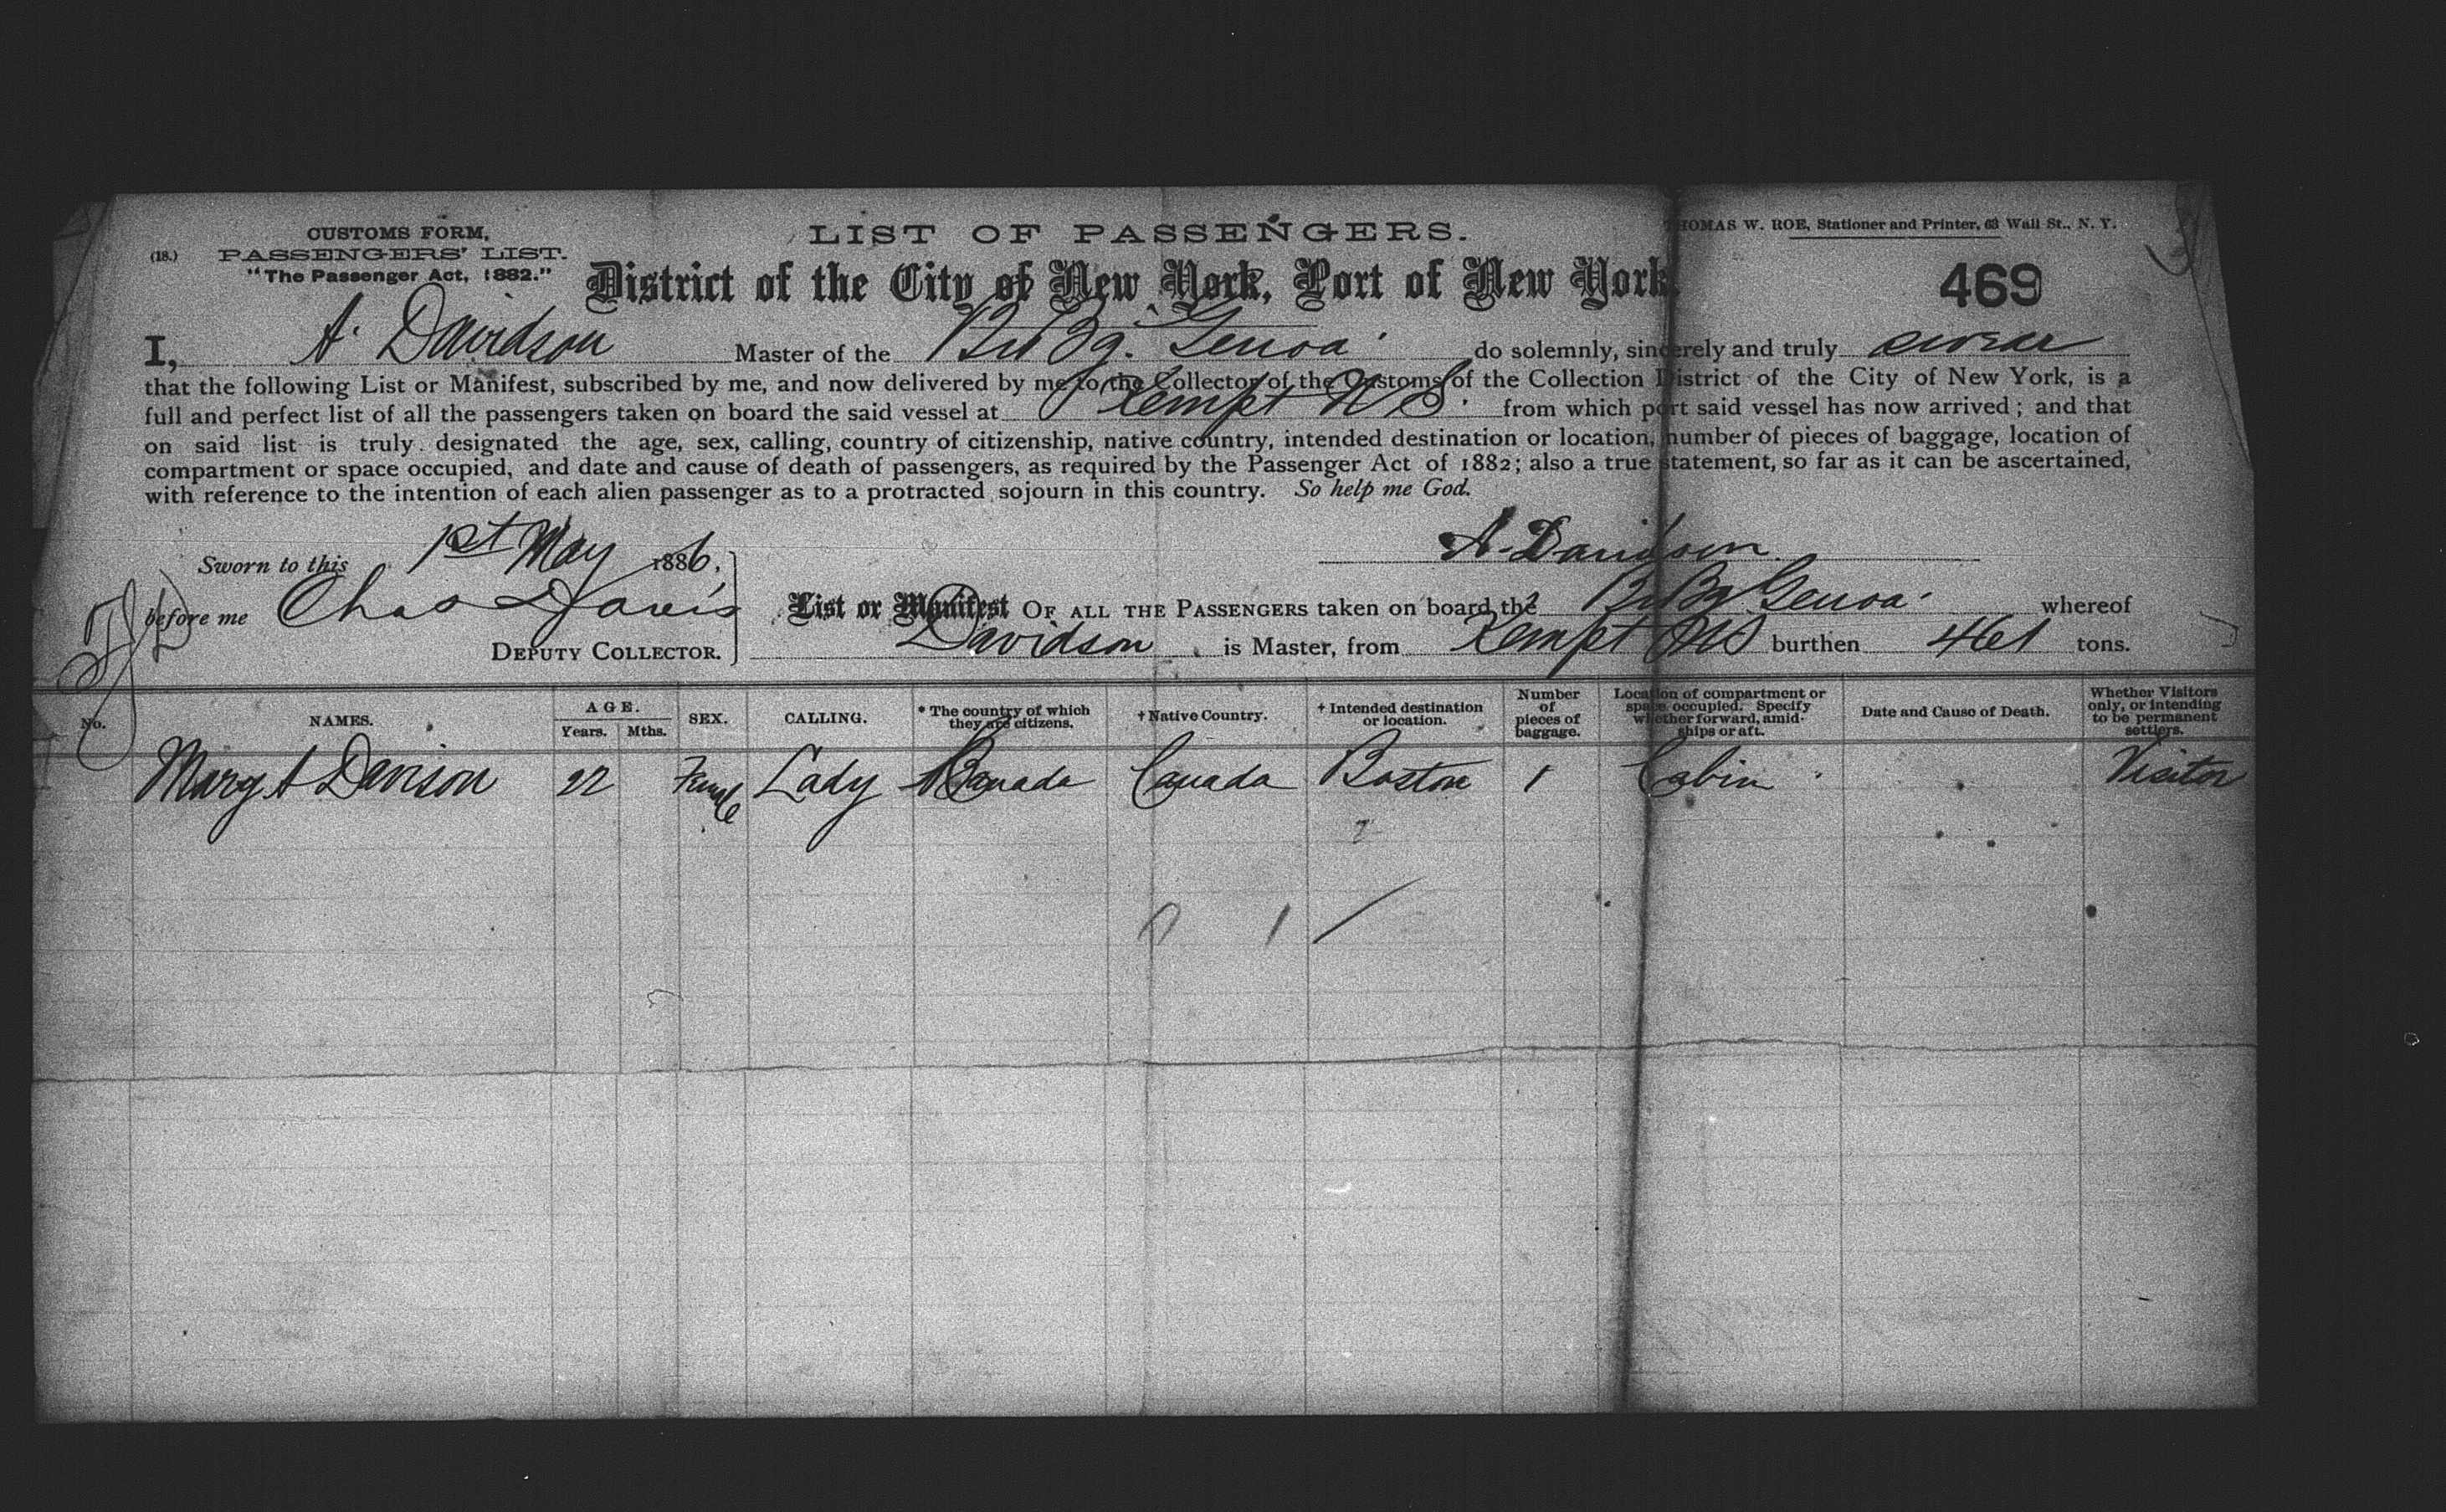 CUSTOMS FORM,
(18.) PASSENGERS' LIST.
"The Passenger Act, 1882."
LIST OF PASSENGERS.
THOMAS W. ROE, Stationer and Printer, 63 Wall St., N. Y.
District of the City of New York, Port of New York.
469
I, A. Davidson Master of the Br Bg. Genoa do solemnly, sincerely and truly swear
that the following List or Manifest, subscribed by me, and now delivered by me to the Collector of the Customs of the Collection District of the City of New York, is a
full and perfect list of all the passengers taken on board the said vessel at Kempt N S. from which port said vessel has now arrived; and that
on said list is truly designated the age, sex, calling, country of citizenship, native country, intended destination or location, number of pieces of baggage, location of
compartment or space occupied, and date and cause of death of passengers, as required by the Passenger Act of 1882; also a true statement, so far as it can be ascertained,
with reference to the intention of each alien passenger as to a protracted sojourn in this country. So help me God.
Sworn to this 1st May 1886,
A. Davidson
before me Chas Davis
DEPUTY COLLECTOR.
List or Manifest OF ALL THE PASSENGERS taken on board the Br Bg Genoa whereof
Davidson is Master, from Kempt NS burthen 461 tons.
No. NAMES. AGE. Years. Mths. SEX. CALLING. * The country of which they are citizens. † Native Country. † Intended destination or location. Number of pieces of baggage. Location of compartment or space occupied. Specify whether forward, amidships or aft. Date and Cause of Death. Whether Visitors only, or intending to be permanent settlers.
Mary A Davison 22 Female Lady Canada Canada Boston 1 Cabin Visitor